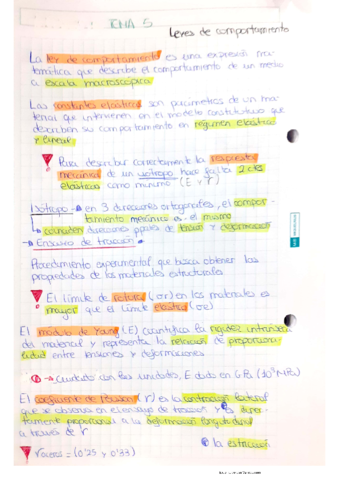 TEMA 5
Leyes de comportamiento
La ley de comportamiento es una expresión ma-
temática que describe el comportamiento de un medio
a escala macroscópica
Las constantes elásticas son parámetros de un ma-
terial que intervienen en el modelo constitutivo que
describen su comportamiento en régimen elástico
y lineal.
Para describir correctamente la respuesta
mecánica de un isótropo hace falta 2 ctes
elásticas como mínimo (E y
Isótropo en 3 direcciones ortogonales, el compor-
tamiento mecánico es el mismo
coinciden direcciones ppales de tensión y deformación
- Ensayo de tracción
Procedimiento experimental que busca obtener las
propiedades de los materiales estructurales
El límite de rotura (σr) en los materiales es
mayor que el límite elástico (σe)
El módulo de Young (E) cuantifica la rigidez intrínseca
del material y representa la relación de proporciona-
lidad entre tensiones y deformaciones
Cuidado con las unidades, E dado en GPa (10³ MPa)
El coeficiente de Poisson (r) es la contracción lateral
que se observa en el ensayo de tracción y es direc-
tamente proporcional a la deformación longitudinal
a través de r
la estricción
r acero = (0'25 y 0'33)